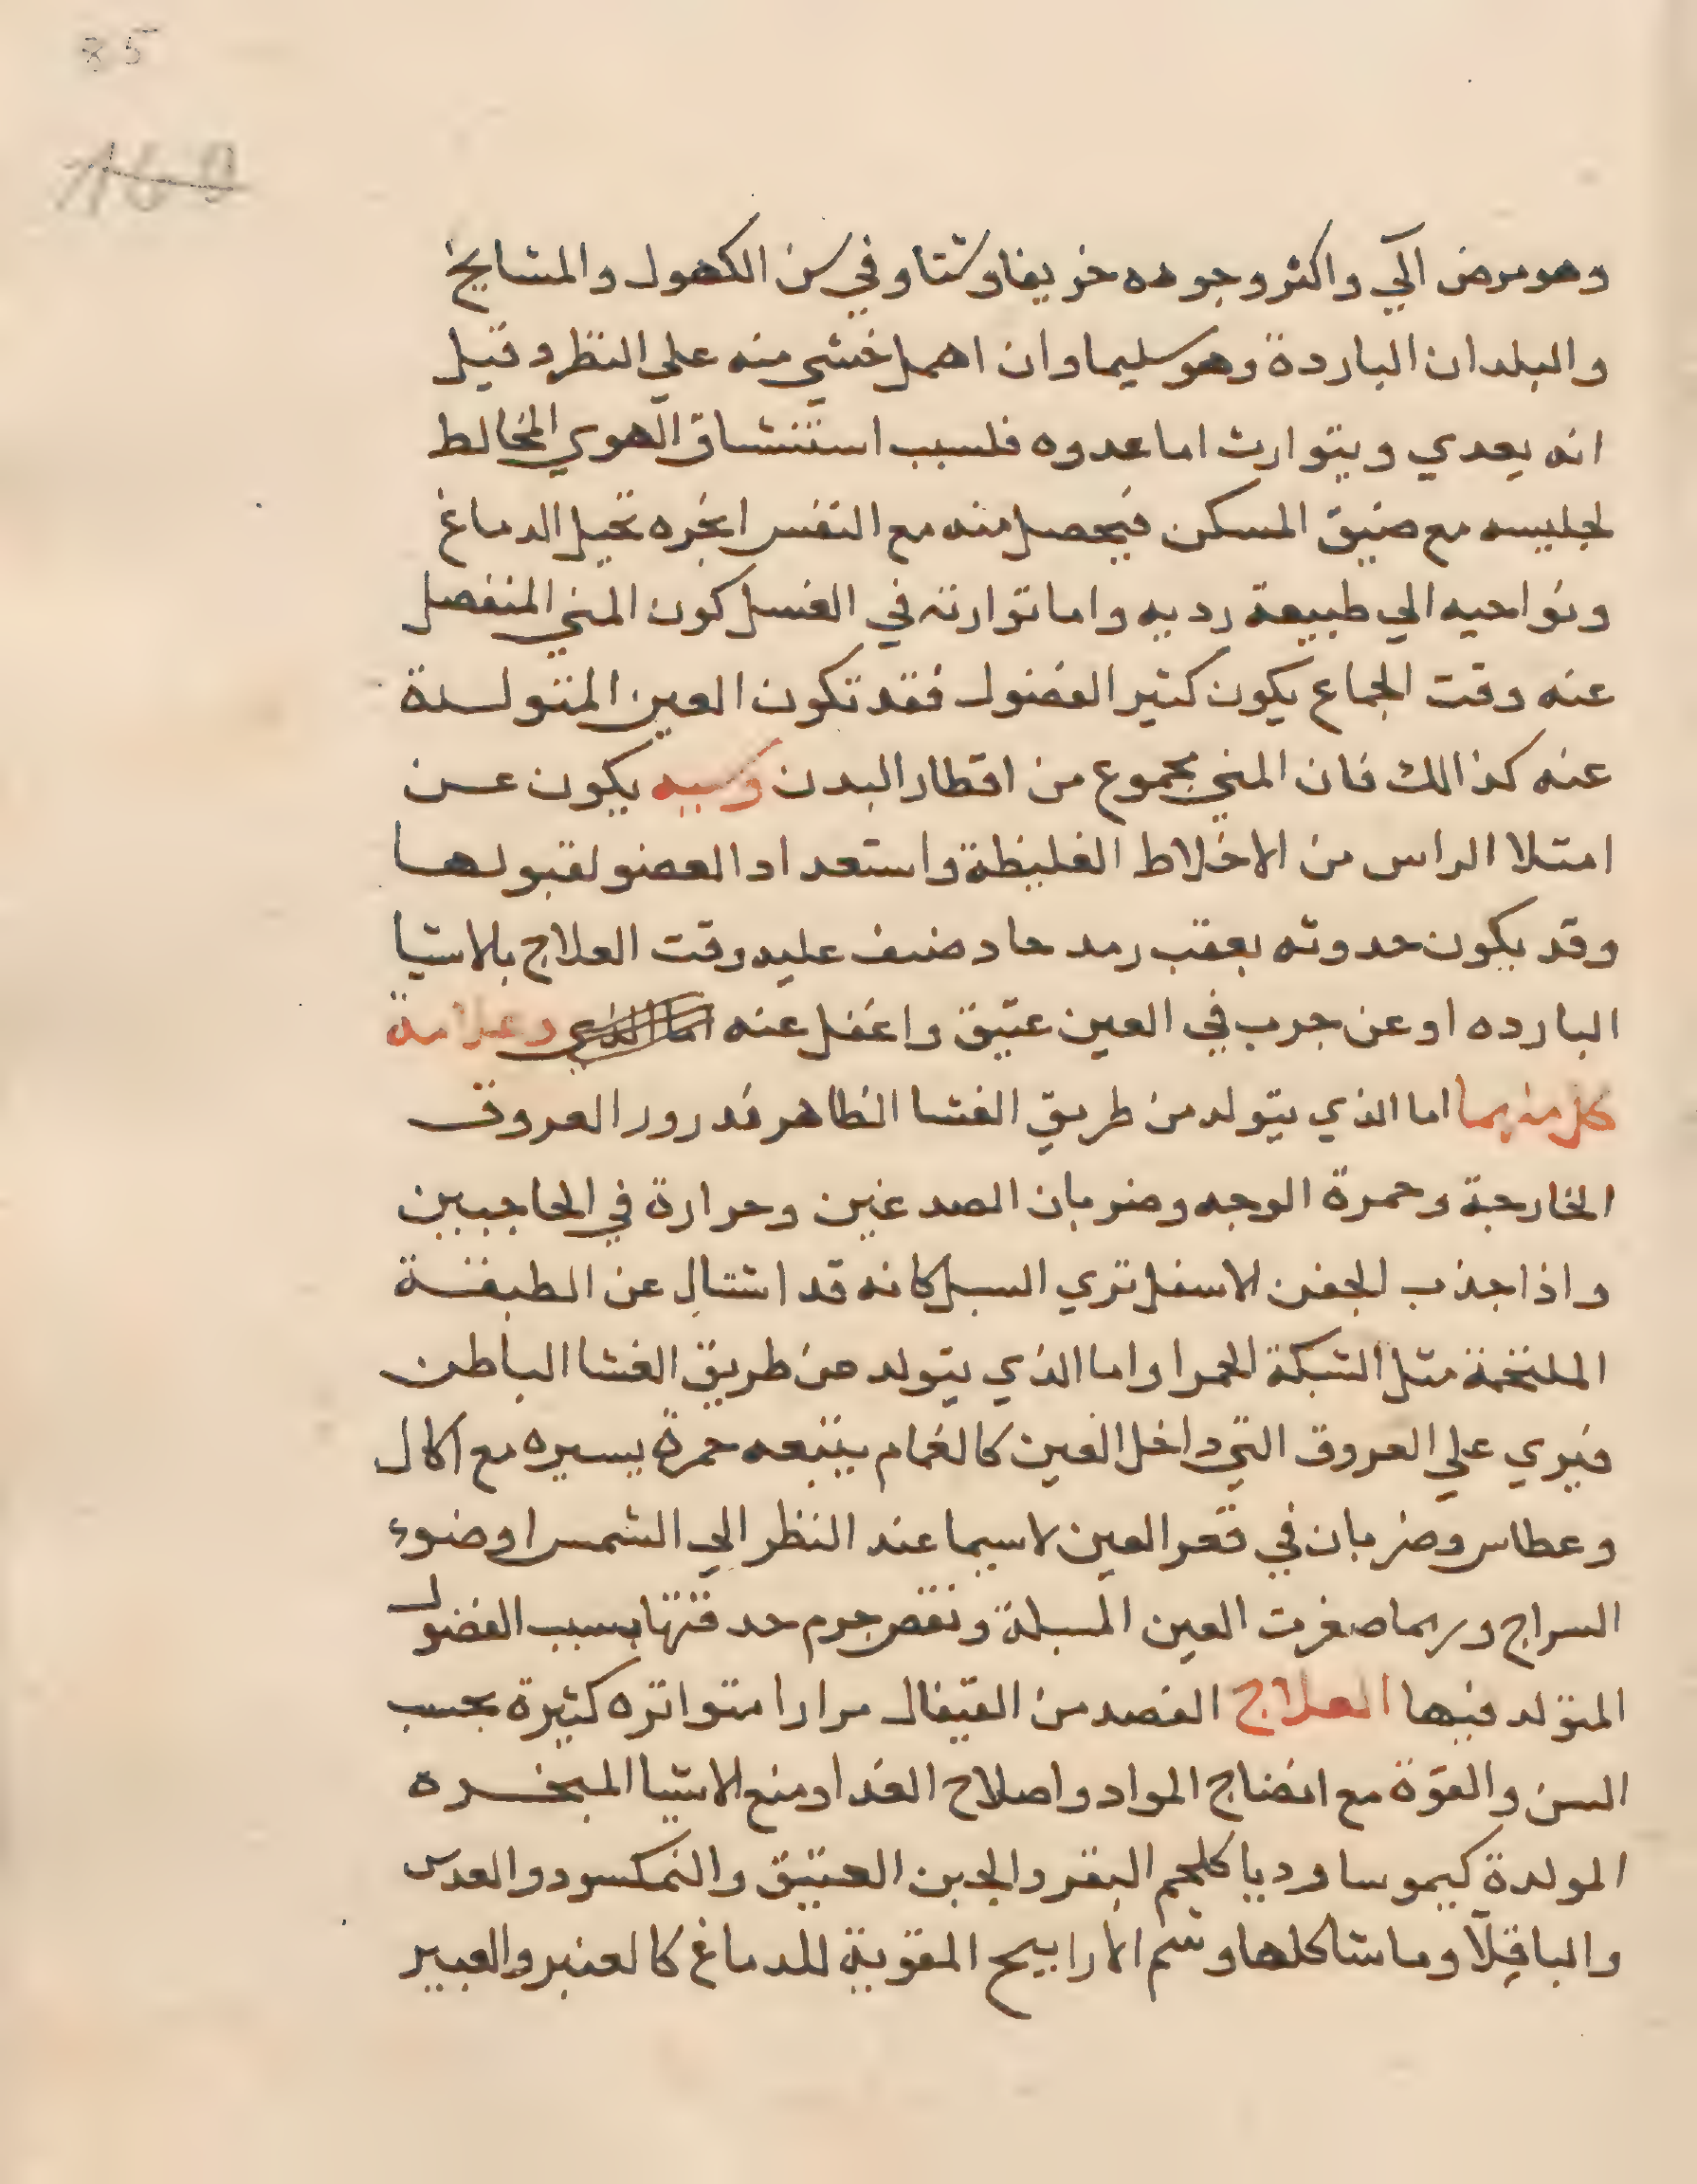 85
وهو مرض الي واكثر وجوده خريفا وشتا وفي سن الكهول والمشايخ
والبلدان الباردة وهو سليما وان اهمل خشي منه علي النظر وقيل
انه يعدي ويتوارث اما عدوه فلسبب استنشاق الهوي المخالط
لجليسه مع ضيق المسكن فيحصل منه مع التنفس ابخره تحيل الدماغ
ونواحيه الي طبيعة رديه واما توارثه في الغسل كون المني المنفصل
عنه وقت الجماع يكون كثير الفضول فقد تكون العين المتولدة
عنه كذالك فان المني مجموع من اقطار البدن وسببه يكون عن
امتلا الراس من الاخلاط الغليظة واستعداد العضو لقبولها
وقد يكون حدوثه بعقب رمد حاد ضيف عليه وقت العلاج بالاشيا
البارده او عن جرب في العين عتيق واغفل عنه اما الذي وعلامة
كل منهما اما الذي يتولد من طريق الغشا الظاهر فدرور العروق
الخارجة وحمرة الوجه وضربان الصدغين وحرارة في الحاجبين
واذا جذب الجفن الاسفل تري السبل كانه قد اشتال عن الطبقة
الملتحمة مثل الشبكة الحمرا واما الذي يتولد من طريق الغشا الباطن
فيري علي العروق التي داخل العين كالغمام يتبعه حمرة يسيره مع اكال
وعطاس وضربان في قعر العين لاسيما عند النظر الي الشمس او ضوء
السراج وربما صغرت العين المسبلة ونقص جرم حدقتها بسبب الفضول
المتولد فيها العلاج الفصد من القيفال مرارا متواتره كثيرة بحسب
السن والقوة مع انضاج المواد واصلاح الغذا ومنع الاشيا المبخره
المولدة كيموسا رديا كلحم البقر والجبن العتيق والنمكسود والعدس
والباقلا وما شاكلها وشم الارابيح المقوية للدماغ كالعنبر والعبير